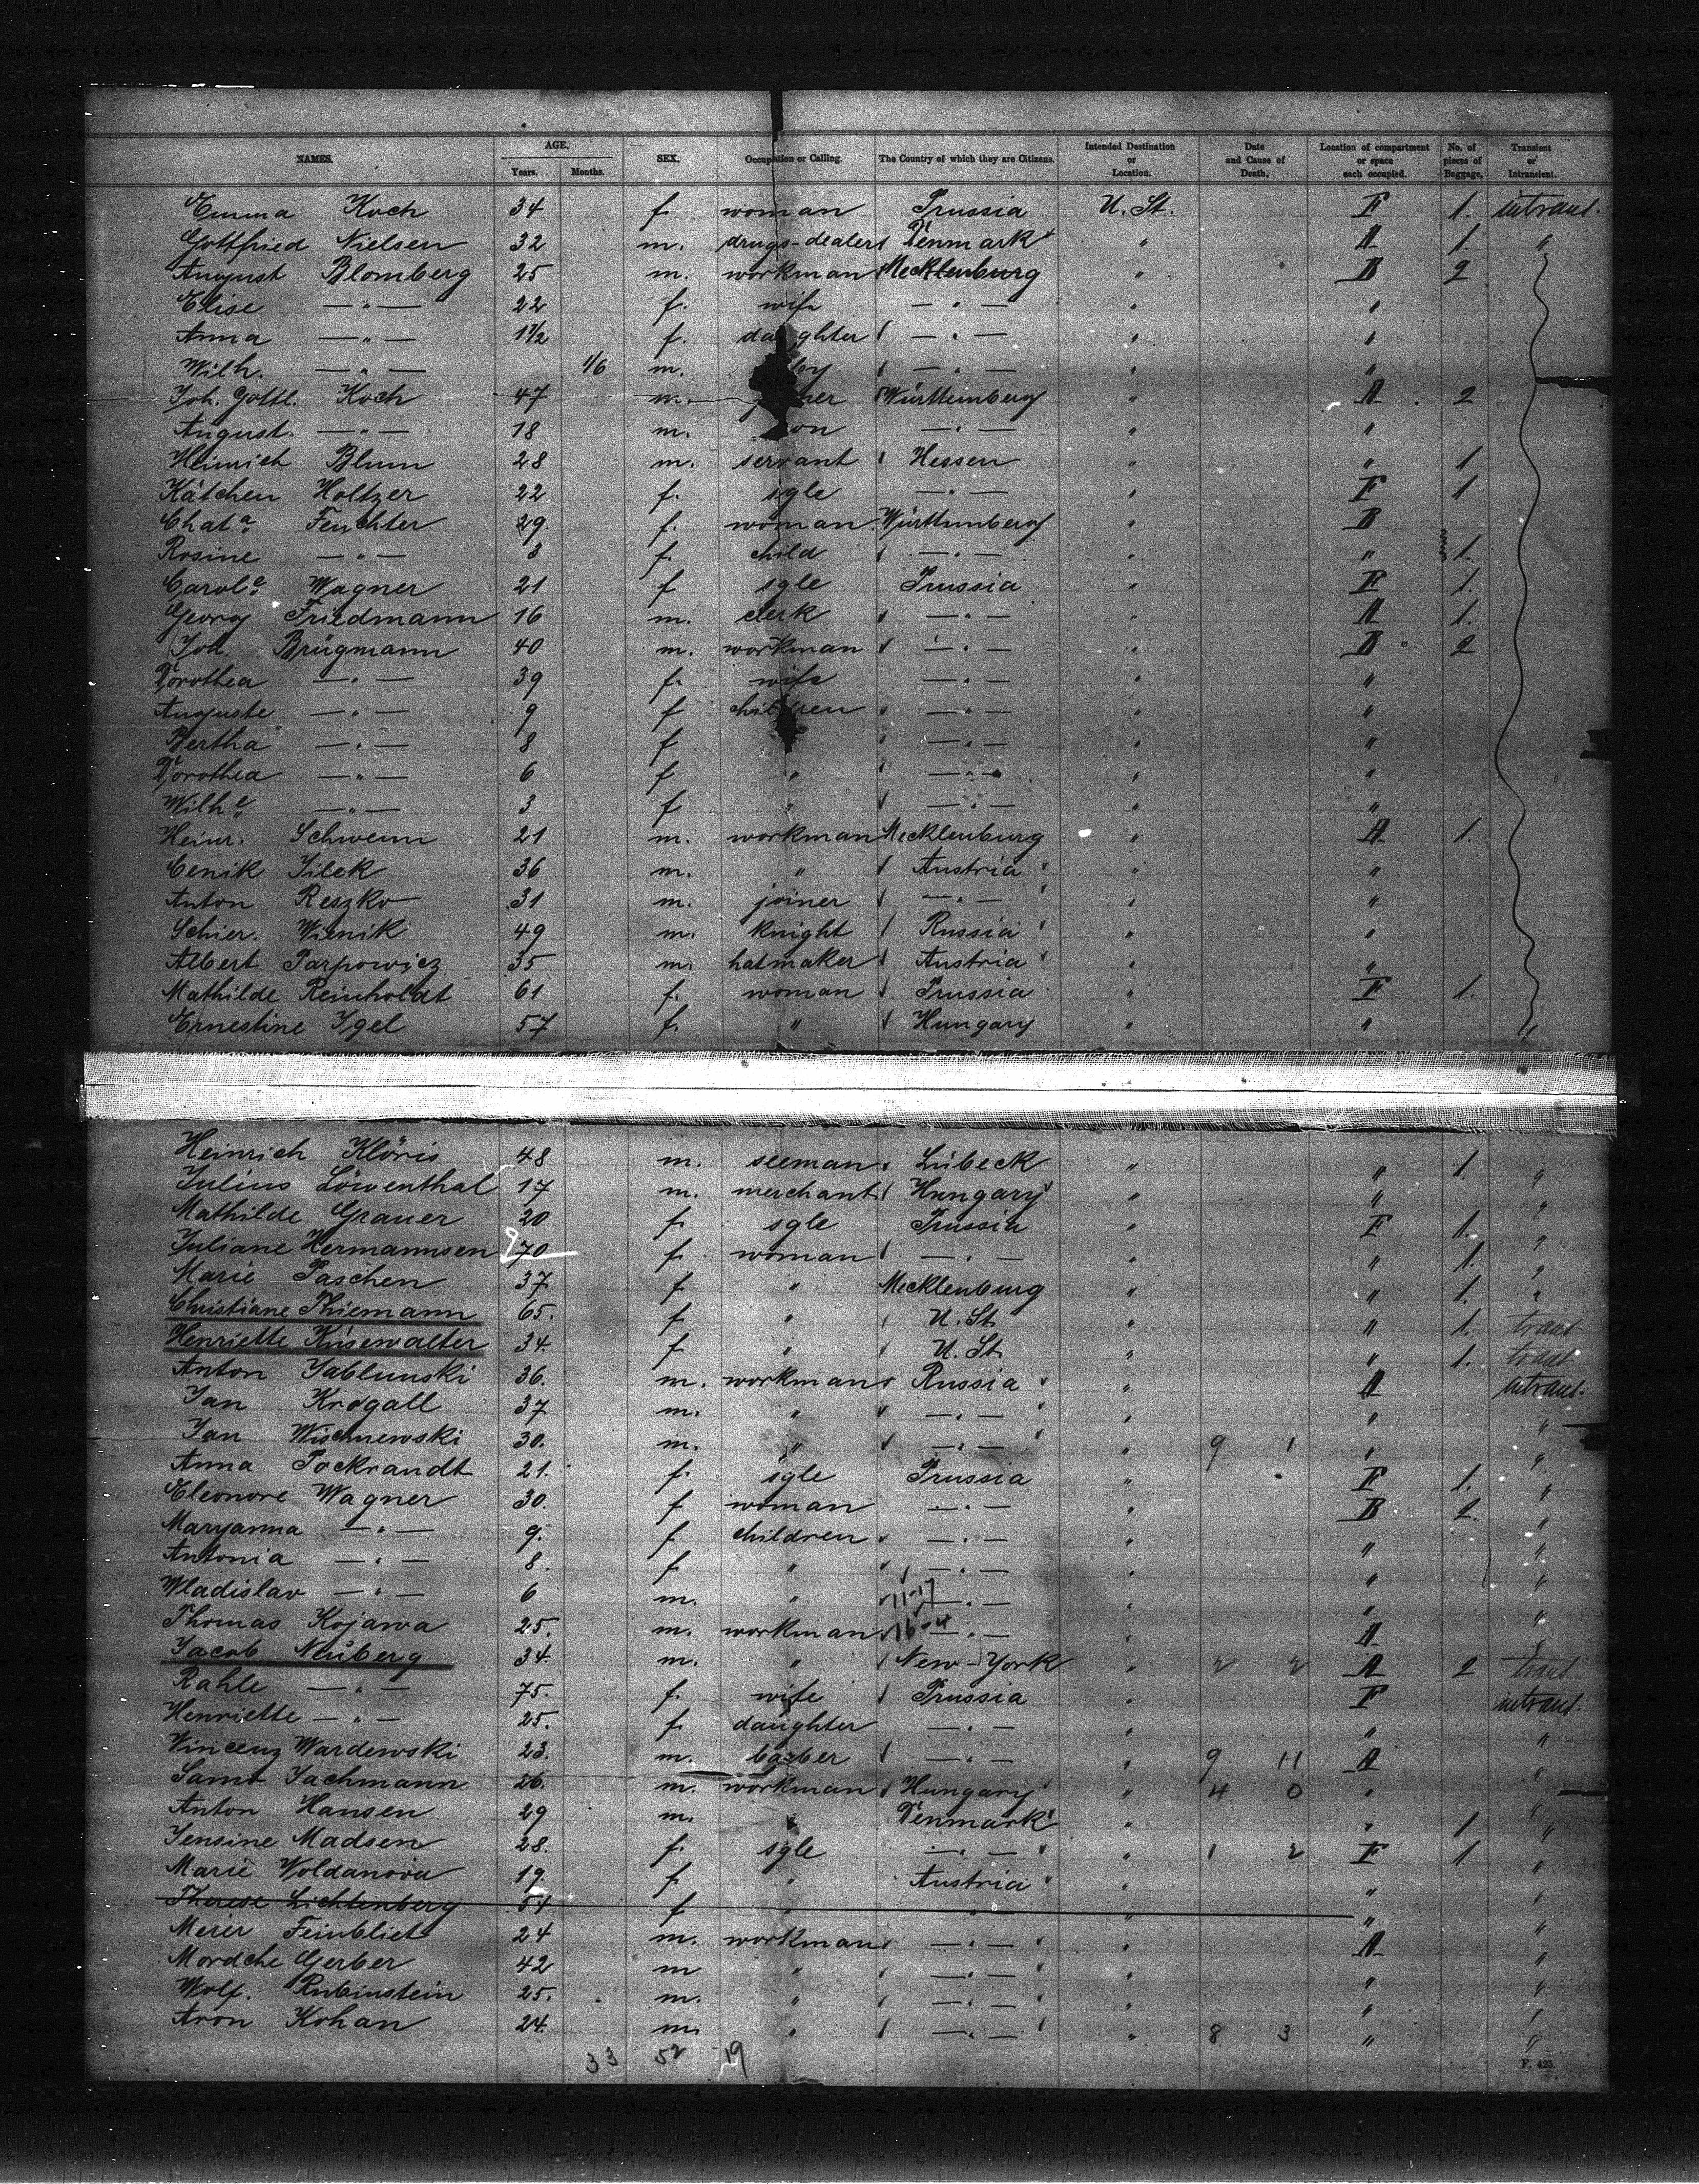 NAMES. AGE. Years. Months. SEX. Occupation or Calling. The Country of which they are Citizens. Intended Destination or Location. Date and Cause of Death. Location of compartment or space each occupied. No. of pieces of Baggage. Transient or Intransient.
Emma Koch 34 f. woman Prussia U. St. F 1. intrant.
Gottfried Nielsen 32 m. drugs-dealer Denmark " A 1. "
August Blomberg 25 m. workman Mecklenburg " B 2
Elise — " — 22 f. wife — " — " "
Anna — " — 1½ f. daughter — " — " "
Wilh. — " — m. — " — " "
Joh. Gottl. Koch 47 m. Württemberg " A 2
August — " — 18 m. son — " — " "
Heinrich Blum 28 m. servant Hessen " " 1
Kätchen Holtzer 22 f. sgle — " — " F 1
Feuchter 29. f. woman Württemberg " B
Rosine — " — 3 f. child — " — " " 1.
Carole Wagner 21 f sgle Prussia " F 1.
Georg Friedmann 16 m. clerk — " — " A 1.
Joh. Brügmann 40 m. workman — " — " B 2
Dorothea — " — 39 f. wife — " — " "
Auguste — " — 9 f children — " — " "
Bertha — " — 8 f — " — " "
Dorothea — " — 6 f " — " — " "
Wilhe — " — 3 f " — " — " "
Heinr. Schwenn 21 m. workman Mecklenburg " A 1.
Cenik Jilek 36 m. " Austria " "
Anton Reszko 31 m. joiner — " — " "
Schier. Wienik 49 m. knight Russia " "
Albert Parpowicz 35 m. hatmaker Austria " "
Mathilde Reinholdt 61 f. woman Prussia " F 1.
Ernestine Igel 57 f. " Hungary " " "
Heinrich Klöris 48 m. seeman Lübeck " " 1. "
Julius Löwenthal 17 m. merchant Hungary " " "
Mathilde Grauer 20 f. sgle Prussia " F 1. "
Juliane Hermannsen 70 f. woman — " — " " 1. "
Marie Paschen 37 f " Mecklenburg " " 1. "
Christiane Thiemann 65. f " U. St. " " 1. trant
Henriette Küsewalter 34 f " U. St. " " 1. trant
Anton Jablunski 36. m. workman Russia " A intrant.
Jan Krogall 37 m. " — " — " " "
Jan Wischnewski 30. m. " — " — " 9 1 " "
Anna Pockrandt 21. f. sgle Prussia " F 1. "
Eleonore Wagner 30. f woman — " — " B 2. "
Maryanna — " — 9. f children — " — " " "
Antonia — " — 8. f " — " — " " "
Wladislav — " — 6 m. " 11-17 — " — " " "
Thomas Kojawa 25. m. workman — " — " A "
Jacob Neuberg 34 m. " New-York " 2 2 A 2 trant
Rahle — " — 75. f. wife Prussia " F intrant.
Henriette — " — 25. f. daughter — " — " " "
Vincenz Wardewski 23. m. barber — " — " 9 11 A "
Jachmann 26. m. workman Hungary " 4 0 " "
Anton Hansen 29 m. " Denmark " " 1 "
Jensine Madsen 28. f. sgle — " — " 1 2 F 1 "
Marie Woldanova 19. f " Austria " " "
Therese Lichtenberg 51 f " " " " "
Meier Feinbliet 24 m. workman — " — " A "
Mordche Gerber 42 m " — " — " " "
Wolf. Rubinstein 25. m. " — " — " " "
Aron Kohan 24. m. " — " — " 8 3 " "
33 52 19
F. 425.